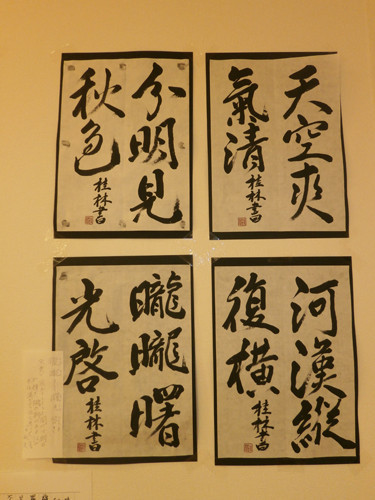 天空爽
氣清
桂林書
分明見
秋色
桂林書
河漢縱
復横
桂林書
朧朧曙
光啓
桂林書